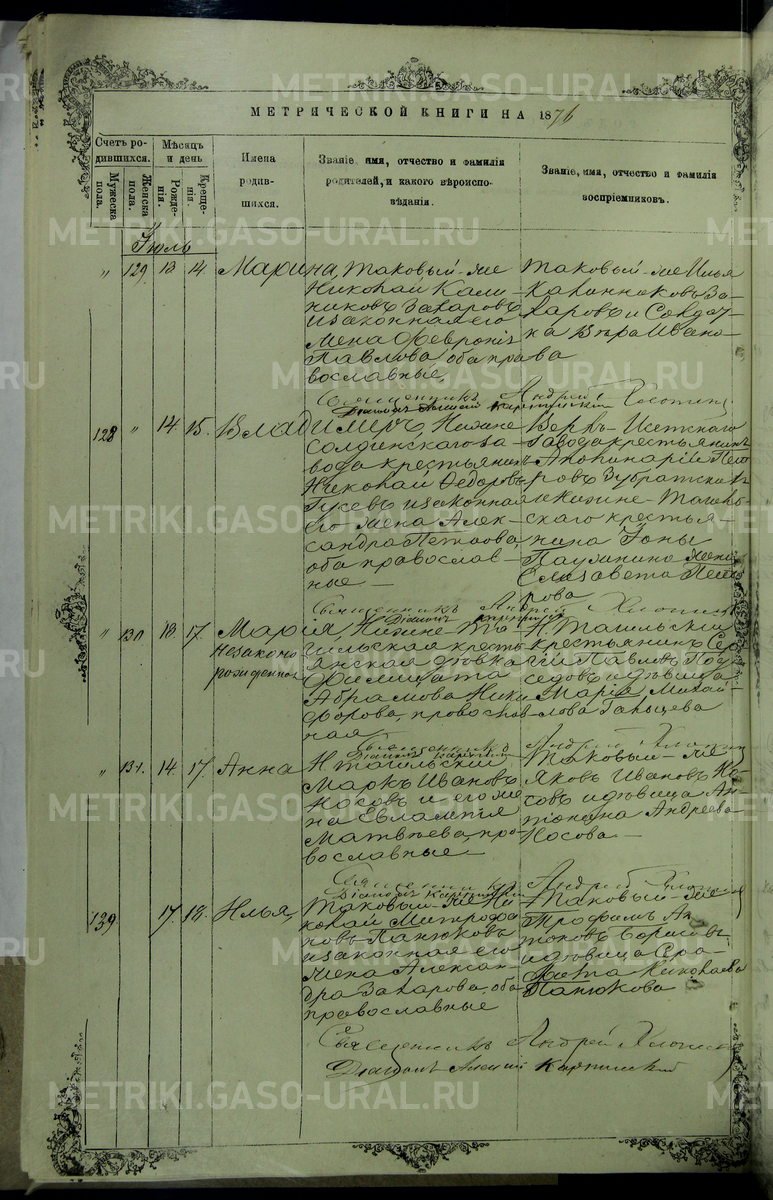 МЕТРИЧЕСКОЙ КНИГИ НА 1876
Счетъ родившихся.
Мужеска пола.
Женска пола.
Мѣсяцъ и день
Рожденія.
Крещенія.
Имена родившихся.
Званіе, имя, отчество и фамилія родителей, и какого вѣроисповѣданія.
Званіе, имя, отчество и фамилія воспріемниковъ.
Іюль
" 129. 13 14. Марина,
Таковый-же
Николай Калин-
никовъ Захаровъ
и законная его
жена Февронія
Павлова оба пра
вославные,
Таковый-же Илья
Калинниковъ За-
харовъ и Солдат-
ка Вѣра Ивано-
ва
Священникъ Андрей
128 " 14. 15. Владимеръ,
Нижне-
Салдинскаго за-
вода крестьянинъ
Николай Ѳедоровъ
Гусевъ и законная
его жена Алек-
сандра
оба православ-
ные —
Верхъ-Исетскаго
завода крестьянинъ
Аполинарій Пет
ровъ
и Нижне-Тагиль-
скаго крестья-
нина Іоны
жена
Елизавета Пет
рова
Священникъ Андрей
" 130 13. 17. Марія,
незаконно
рожденная
Нижне-Та-
гильская кресть
янская дѣвка
Филицата
Абрамова Ники
форова, православ
ная
Н. Тагильскій
крестьянинъ Сер
гій Павловъ
и дѣвица
Марія Михай-
лова
Священникъ Андрей
" 131. 14. 17. Анна
Н. Тагильскій
Маркъ Ивановъ
Носовъ и его же
на Евлампія
Матвѣева, пра-
вославные —
Таковый-же
Яковъ Ивановъ Но-
совъ и дѣвица Ан-
Андреева
Носова —
Священникъ Андрей
139. 17. 18. Илья,
Таковый-же Ни
колай Митрофа
новъ Панюковъ
и законная его
жена Алексан-
дра Захарова, оба
православные
Таковый-же
Трофимъ Ан-
тоновъ Борисовъ
и дѣвица
Николаева
Панюкова
Священникъ Андрей
Діаконъ Алексій Карпинскій
METRIKI.GASO-URAL.RU